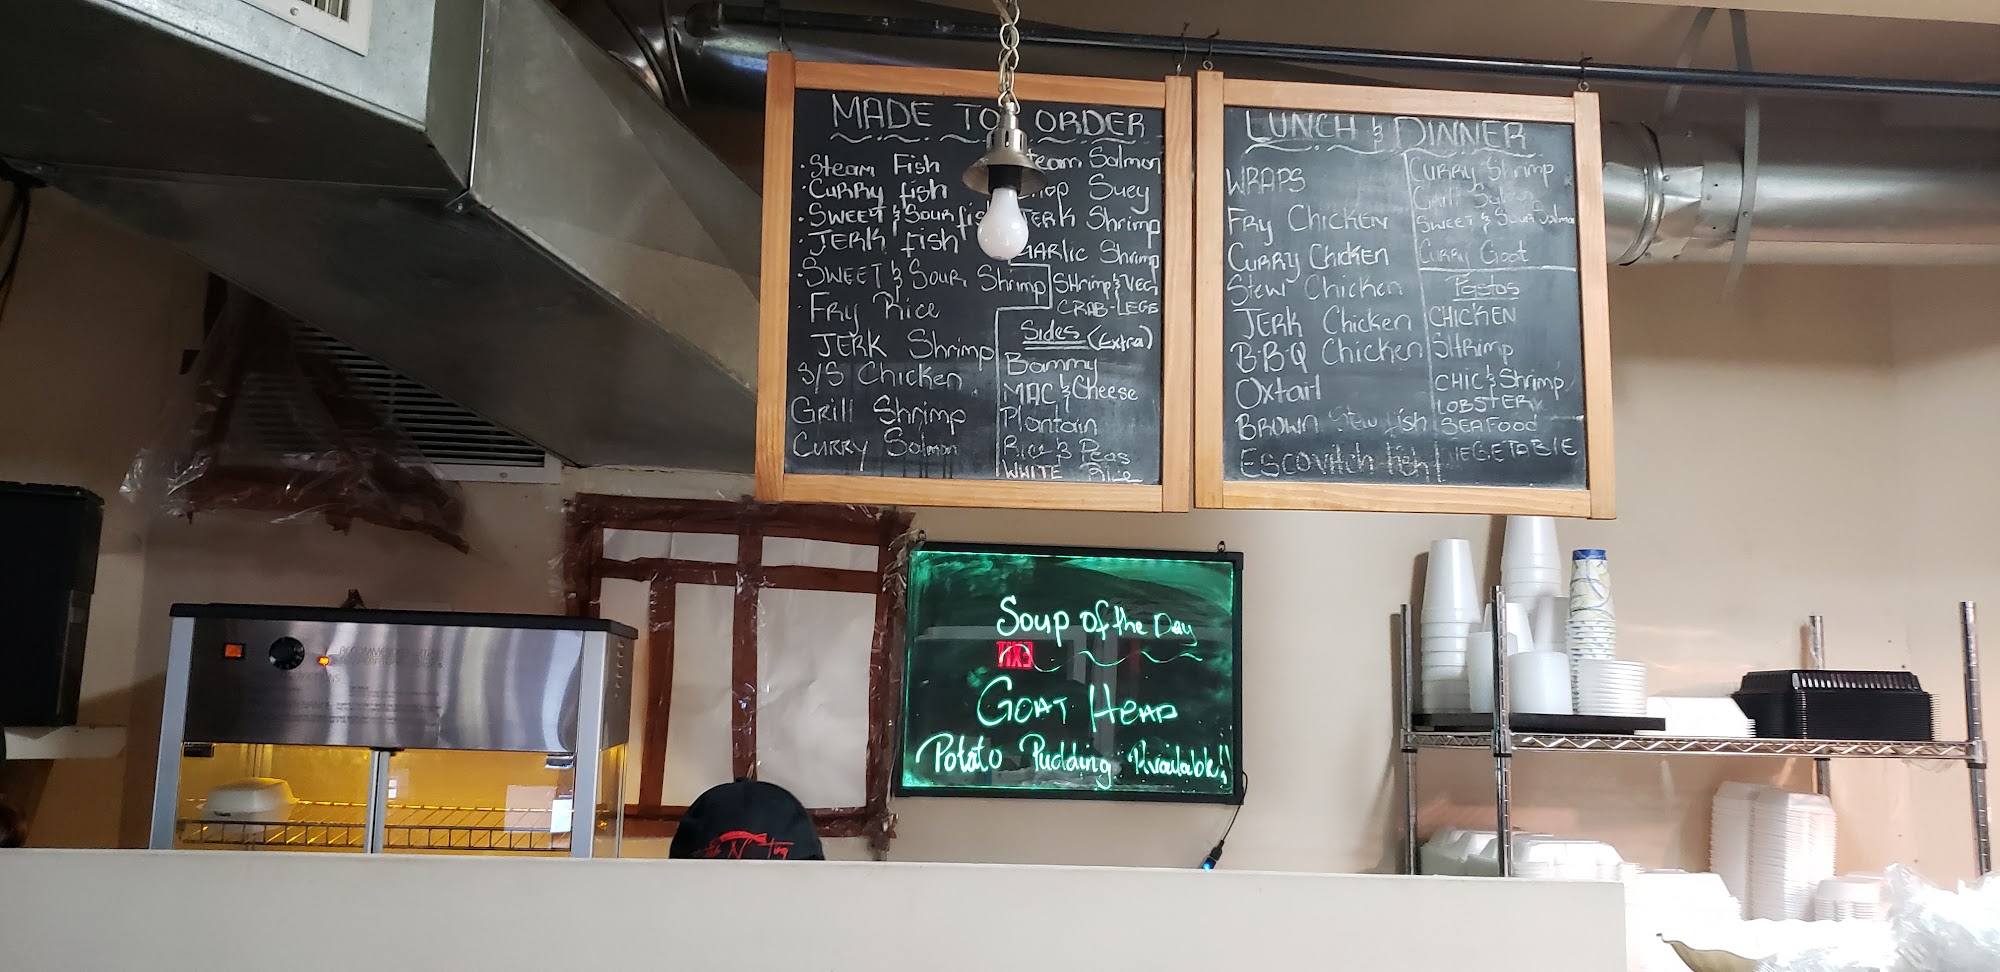 MADE TO ORDER
· Steam Fish
· Curry fish
· Sweet & Sour fish
· Jerk fish
· Sweet & Sour Shrimp
Fry Rice
Jerk Shrimp
S/S Chicken
Grill Shrimp
Curry Salmon
Salmon
Suey
Jerk Shrimp
Garlic Shrimp
SHrimp & Veg
CRAB-LEGS
Sides (Extra)
Bammy
MAC & Cheese
Plantain
Rice & Peas
WHITE Rice
LUNCH & DINNER
WRAPS
Fry Chicken
Curry Chicken
Stew Chicken
Jerk Chicken
B·B·Q Chicken
Oxtail
BROWN Stew fish
ESCOVitch fish
Curry Shrimp
Sweet & Sour
Curry Goat
Pastas
CHICKEN
SHrimp
CHIC & Shrimp
LOBSTER
SEAFOOD
VEGETABLE
Soup of the Day
EXIT
Goat Head
Potato Pudding Available!